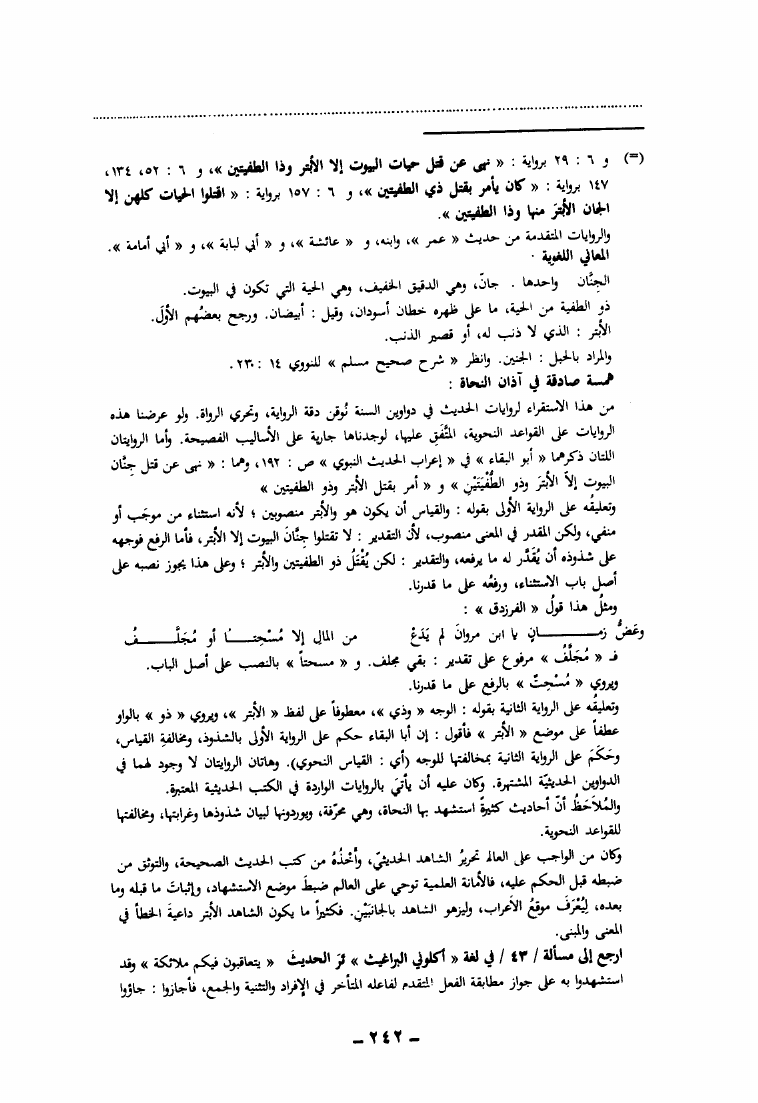 (=) و ٦ : ٢٩ برواية : « نهى عن قتل حيات البيوت إلا الأبتر وذا الطفيتين »، و ٦ : ٥٢، ١٣٤،
١٤٧ برواية : « كان يأمر بقتل ذي الطفيتين »، و ٦ : ١٥٧ برواية : « اقتلوا الحيات كلهن إلا
الجان الأبترَ منها وذا الطفيتين ».
والروايات المتقدمة من حديث « عمر »، وابنه، و « عائشة »، و « أبي لبابة »، و « أبي أمامة ».
المعاني اللغوية .
الجِنَّان واحدها . جانّ، وهي الدقيق الخفيف، وهي الحية التي تكون في البيوت.
ذو الطفية من الحية، ما على ظهره خطان أسودان، وقيل : أبيضان. ورجح بعضُهم الأولَ.
الأبتر : الذي لا ذنب له، أو قصير الذنب.
والمراد بالحبل : الجنين. وانظر « شرح صحيح مسلم » للنووي ١٤ : ٢٣٠.
همسة صادقة في آذان النحاة :
من هذا الاستقراء لروايات الحديث في دواوين السنة نُوقن دقة الرواية، وتحري الرواة. ولو عرضنا هذه
الروايات على القواعد النحوية، المتَّفَقِ عليها، لوجدناها جارية على الأساليب الفصيحة. وأما الروايتان
اللتان ذكرهما « أبو البقاء » في « إعراب الحديث النبوي » ص : ١٩٢، وهما : « نهى عن قتل جِنَّان
البيوت إلاّ الأبتَرَ وذو الطُّفْيَتَيْنِ » و « أمر بقتل الأبتر وذو الطفيتين »
وتعليقُه على الرواية الأولى بقوله : والقياس أن يكون هو والأبتر منصوبين ؛ لأنه استثناء من موجَب أو
منفي، ولكن المقدر في المعنى منصوب، لأن التقدير : لا تقتلوا جِنَّانَ البيوت إلا الأبتر، فأما الرفع فوجهه
على شذوذه أن يُقَدَّر له ما يرفعه، والتقدير : لكن يُقْتَلُ ذو الطفيتين والأبتر ؛ وعلى هذا يجوز نصبه على
أصل باب الاستثناء، ورفعُه على ما قدرنا.
ومثلُ هذا قولُ « الفرزدق » :
وعَضُّ زمـــــــــانٍ يا ابن مروانَ لم يَدَعْ من المالِ إلا مُسْحِتــــا أو مُجَلَّـــــــفُ
فـ « مُجَلَّفُ » مرفوع على تقدير : بقي مجلف. و « مسحتاً » بالنصب على أصل الباب.
ويروي « مُسْحِتٌ » بالرفع على ما قدرنا.
وتعليقُه على الرواية الثانية بقوله : الوجه « وذي »، معطوفاً على لفظ « الأبتر »، ويروي « ذو » بالواو
عطفاً على موضع « الأبتر » فأقول : إن أبا البقاء حكم على الرواية الأولى بالشذوذ، ومخالفةِ القياس،
وحَكَمَ على الرواية الثانية بمخالفتها للوجه (أي : القياس النحوي). وهاتان الروايتان لا وجود لهما في
الدواوين الحديثيّة المشتهرة. وكان عليه أن يأتيَ بالروايات الواردة في الكتب الحديثية المعتبرة.
والمُلاَحَظُ أنّ أحاديث كثيرةً استشهد بها النحاة، وهي محرّفة، ويوردونها لبيان شذوذها وغرابتها، ومخالفتها
للقواعد النحوية.
وكان من الواجب على العالم تحريرُ الشاهد الحديثيّ، وأخْذُهُ من كتب الحديث الصحيحة، والتوثق من
ضبطه قبل الحكم عليه، فالأمانة العلمية توحي على العالم ضبطَ موضع الاستشهاد، وإثباتَ ما قبله وما
بعده، لِيُعْرَفَ موقعُ الأعراب، وليزهو الشاهد بالجانبَيْنِ. فكثيراً ما يكون الشاهد الأبتر داعيةَ الخطأ في
المعنى والمبنى.
ارجع إلى مسألة / ٤٣ / في لغة « أكلوني البراغيث » تَرَ الحديثَ « يتعاقبون فيكم ملائكة » وقد
استشهدوا به على جواز مطابقة الفعل المتقدم لفاعله المتأخر في الإفراد والتثنية والجمع، فأجازوا : جاؤوا
– ٢٤٢ –